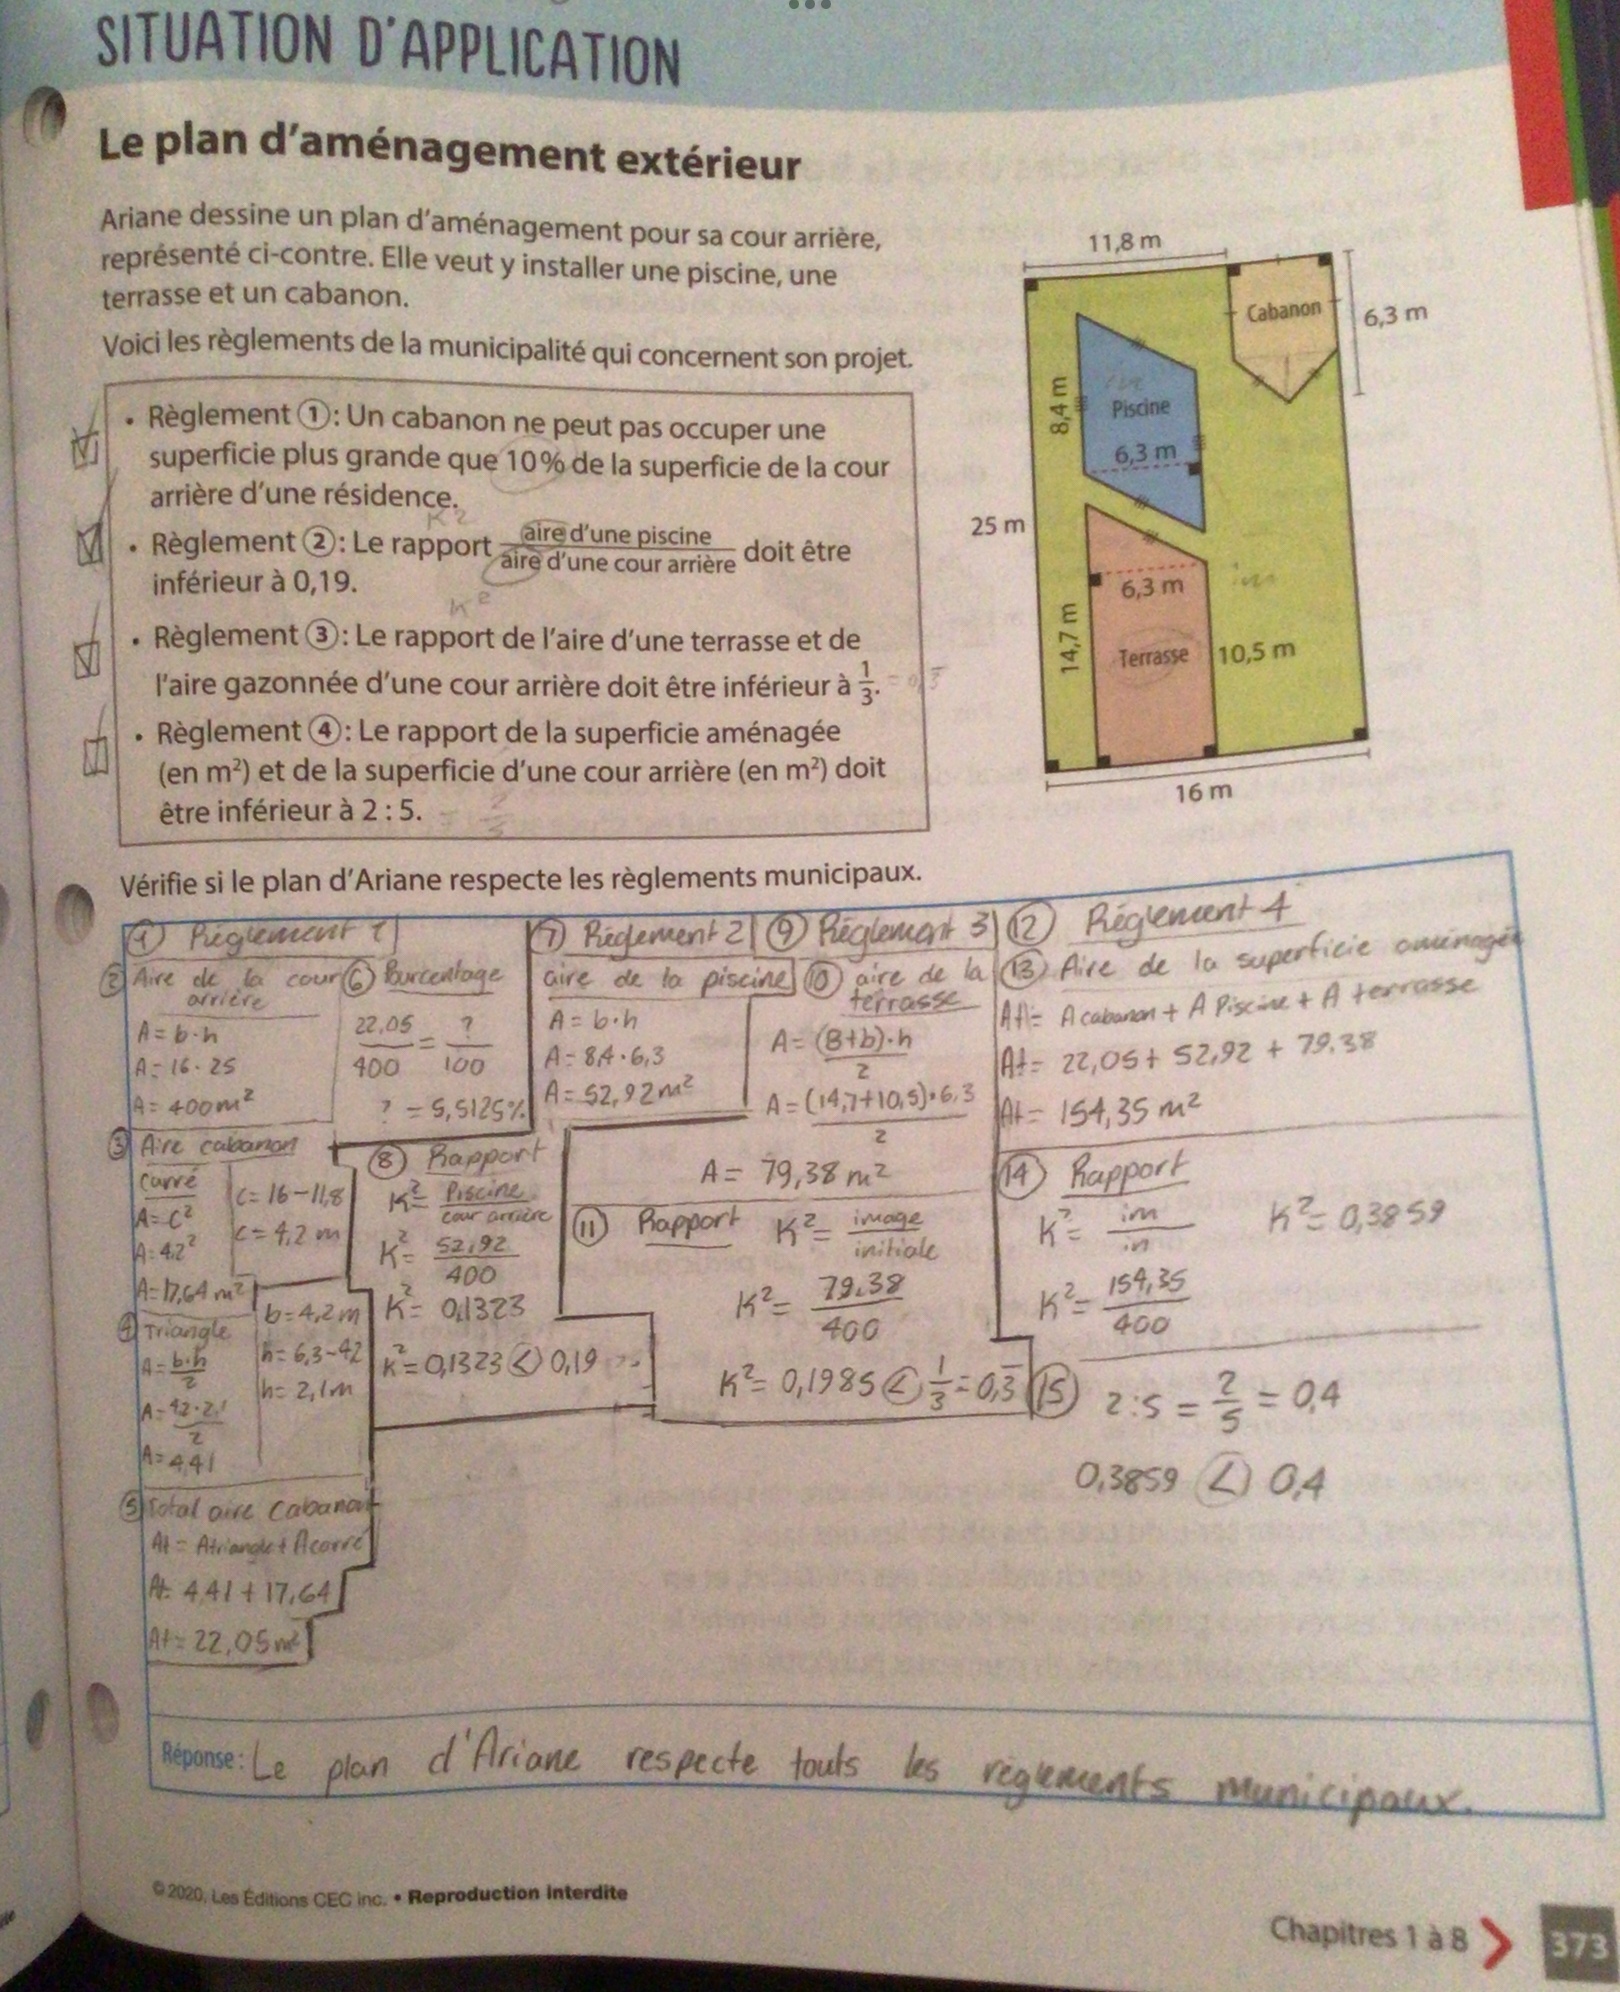 SITUATION D'APPLICATION
Le plan d'aménagement extérieur
Ariane dessine un plan d'aménagement pour sa cour arrière,
représenté ci-contre. Elle veut y installer une piscine, une
terrasse et un cabanon.
Voici les règlements de la municipalité qui concernent son projet.
• Règlement ①: Un cabanon ne peut pas occuper une
superficie plus grande que 10 % de la superficie de la cour
arrière d'une résidence.
K²
• Règlement ②: Le rapport aire d'une piscine / aire d'une cour arrière doit être
inférieur à 0,19.
K²
• Règlement ③: Le rapport de l'aire d'une terrasse et de
l'aire gazonnée d'une cour arrière doit être inférieur à 1/3.
• Règlement ④: Le rapport de la superficie aménagée
(en m²) et de la superficie d'une cour arrière (en m²) doit
être inférieur à 2 : 5.
11,8 m
Cabanon
6,3 m
8,4 m
Piscine
6,3 m
25 m
6,3 m
14,7 m
Terrasse
10,5 m
16 m
Vérifie si le plan d'Ariane respecte les règlements municipaux.
① Règlement 1
② Aire de la cour
arrière
A = b·h
A = 16·25
A = 400m²
③ Aire cabanon
carré
A = c²
A = 4,2²
A = 17,64 m²
c = 16-11,8
c = 4,2 m
④ Triangle
A = b·h/2
A = 4,2·2,1
2
A = 4,41
b = 4,2 m
h = 6,3-4,2
h = 2,1m
⑤ Total aire cabanon
At = Atriangle + Acarré
At = 4,41 + 17,64
At = 22,05 m²
⑥ Pourcentage
22,05/400 = ?/100
? = 5,5125%
⑦ Règlement 2
aire de la piscine
A = b·h
A = 8,4·6,3
A = 52,92m²
⑧ Rapport
K² = Piscine/cour arrière
K² = 52,92/400
K² = 0,1323
K² = 0,1323 < 0,19
⑨ Règlement 3
⑩ aire de la
terrasse
A = (B+b)·h
2
A = (14,7+10,5)·6,3
2
A = 79,38 m²
⑪ Rapport K² = image/initiale
K² = 79,38/400
K² = 0,1985 < 1/3 = 0,3̅
⑫ Règlement 4
⑬ Aire de la superficie aménagée
At = A cabanon + A Piscine + A terrasse
At = 22,05 + 52,92 + 79,38
At = 154,35 m²
⑭ Rapport
K² = im/in
K² = 154,35/400
K² = 0,3859
⑮ 2:5 = 2/5 = 0,4
0,3859 < 0,4
Réponse: Le plan d'Ariane respecte touts les règlements municipaux.
© 2020, Les Éditions CEC inc. • Reproduction interdite
Chapitres 1 à 8 > 373